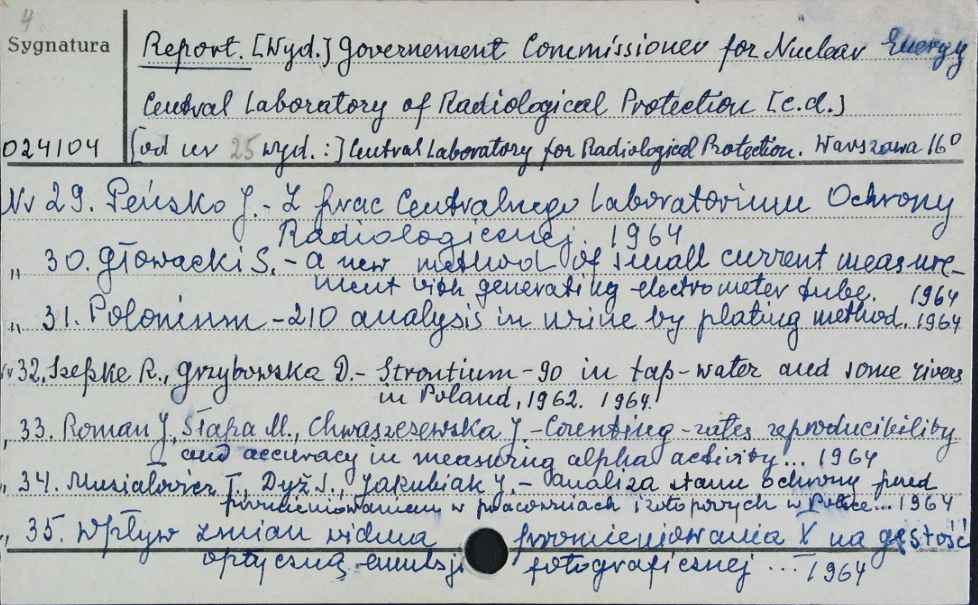 4
Sygnatura
Report. [Wyd.] Governement Commissioner for Nuclear Energy
Central Laboratory of Radiological Protection [c.d.]
024104
[od nr 25 wyd. :] Central Laboratory for Radiological Protection. Warszawa 16°
Nr 29. Peńsko J. - Z prac Centralnego Laboratorium Ochrony
Radiologicznej. 1964
„ 30. Głowacki S. - a new method of small current measure-
ment with generating electrometer tube. 1964
„ 31. Polonium - 210 analysis in urine by plating method. 1964
Nr 32. Szepke R., Grzybowska D. - Strontium - 90 in tap-water and some rivers
in Poland, 1962. 1964.
„ 33. Roman J., Słapa M., Chwaszczewska J. - Counting-rates reproducibility
and accuracy in measuring alpha activity... 1964
„ 34. Musiałowicz T., Dyż J., Jakubiak J. - analiza stanu ochrony przed
promieniowaniem w pracowniach izotopowych w Polsce... 1964
„ 35. Wpływ zmian widma promieniowania X na gęstość
optyczną emulsji fotograficznej ... 1964